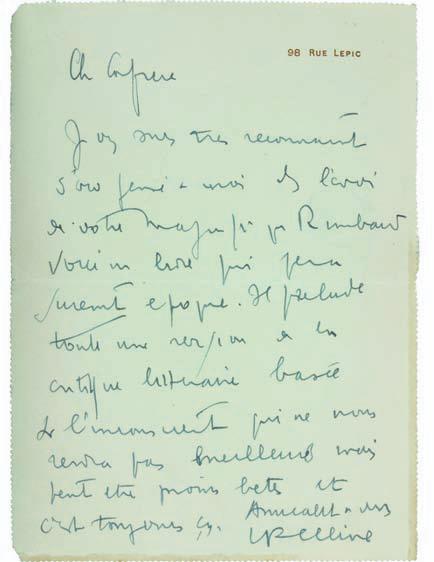 98 RUE LEPIC
Ch Confrere
Je vs suis tres reconnaissant
d'avoir pensé a moi ds l'envoi
de votre magnifiq Rimbaud
Voici un livre qui fera
surement epoque. Il prelude
toute une revision de la
critique litteraire basée
sr l'inconscient qui ne nous
rendra pas meilleurs mais
peut etre moins betes et
c'est toujours ça. Amicalt a vs
LF Celine